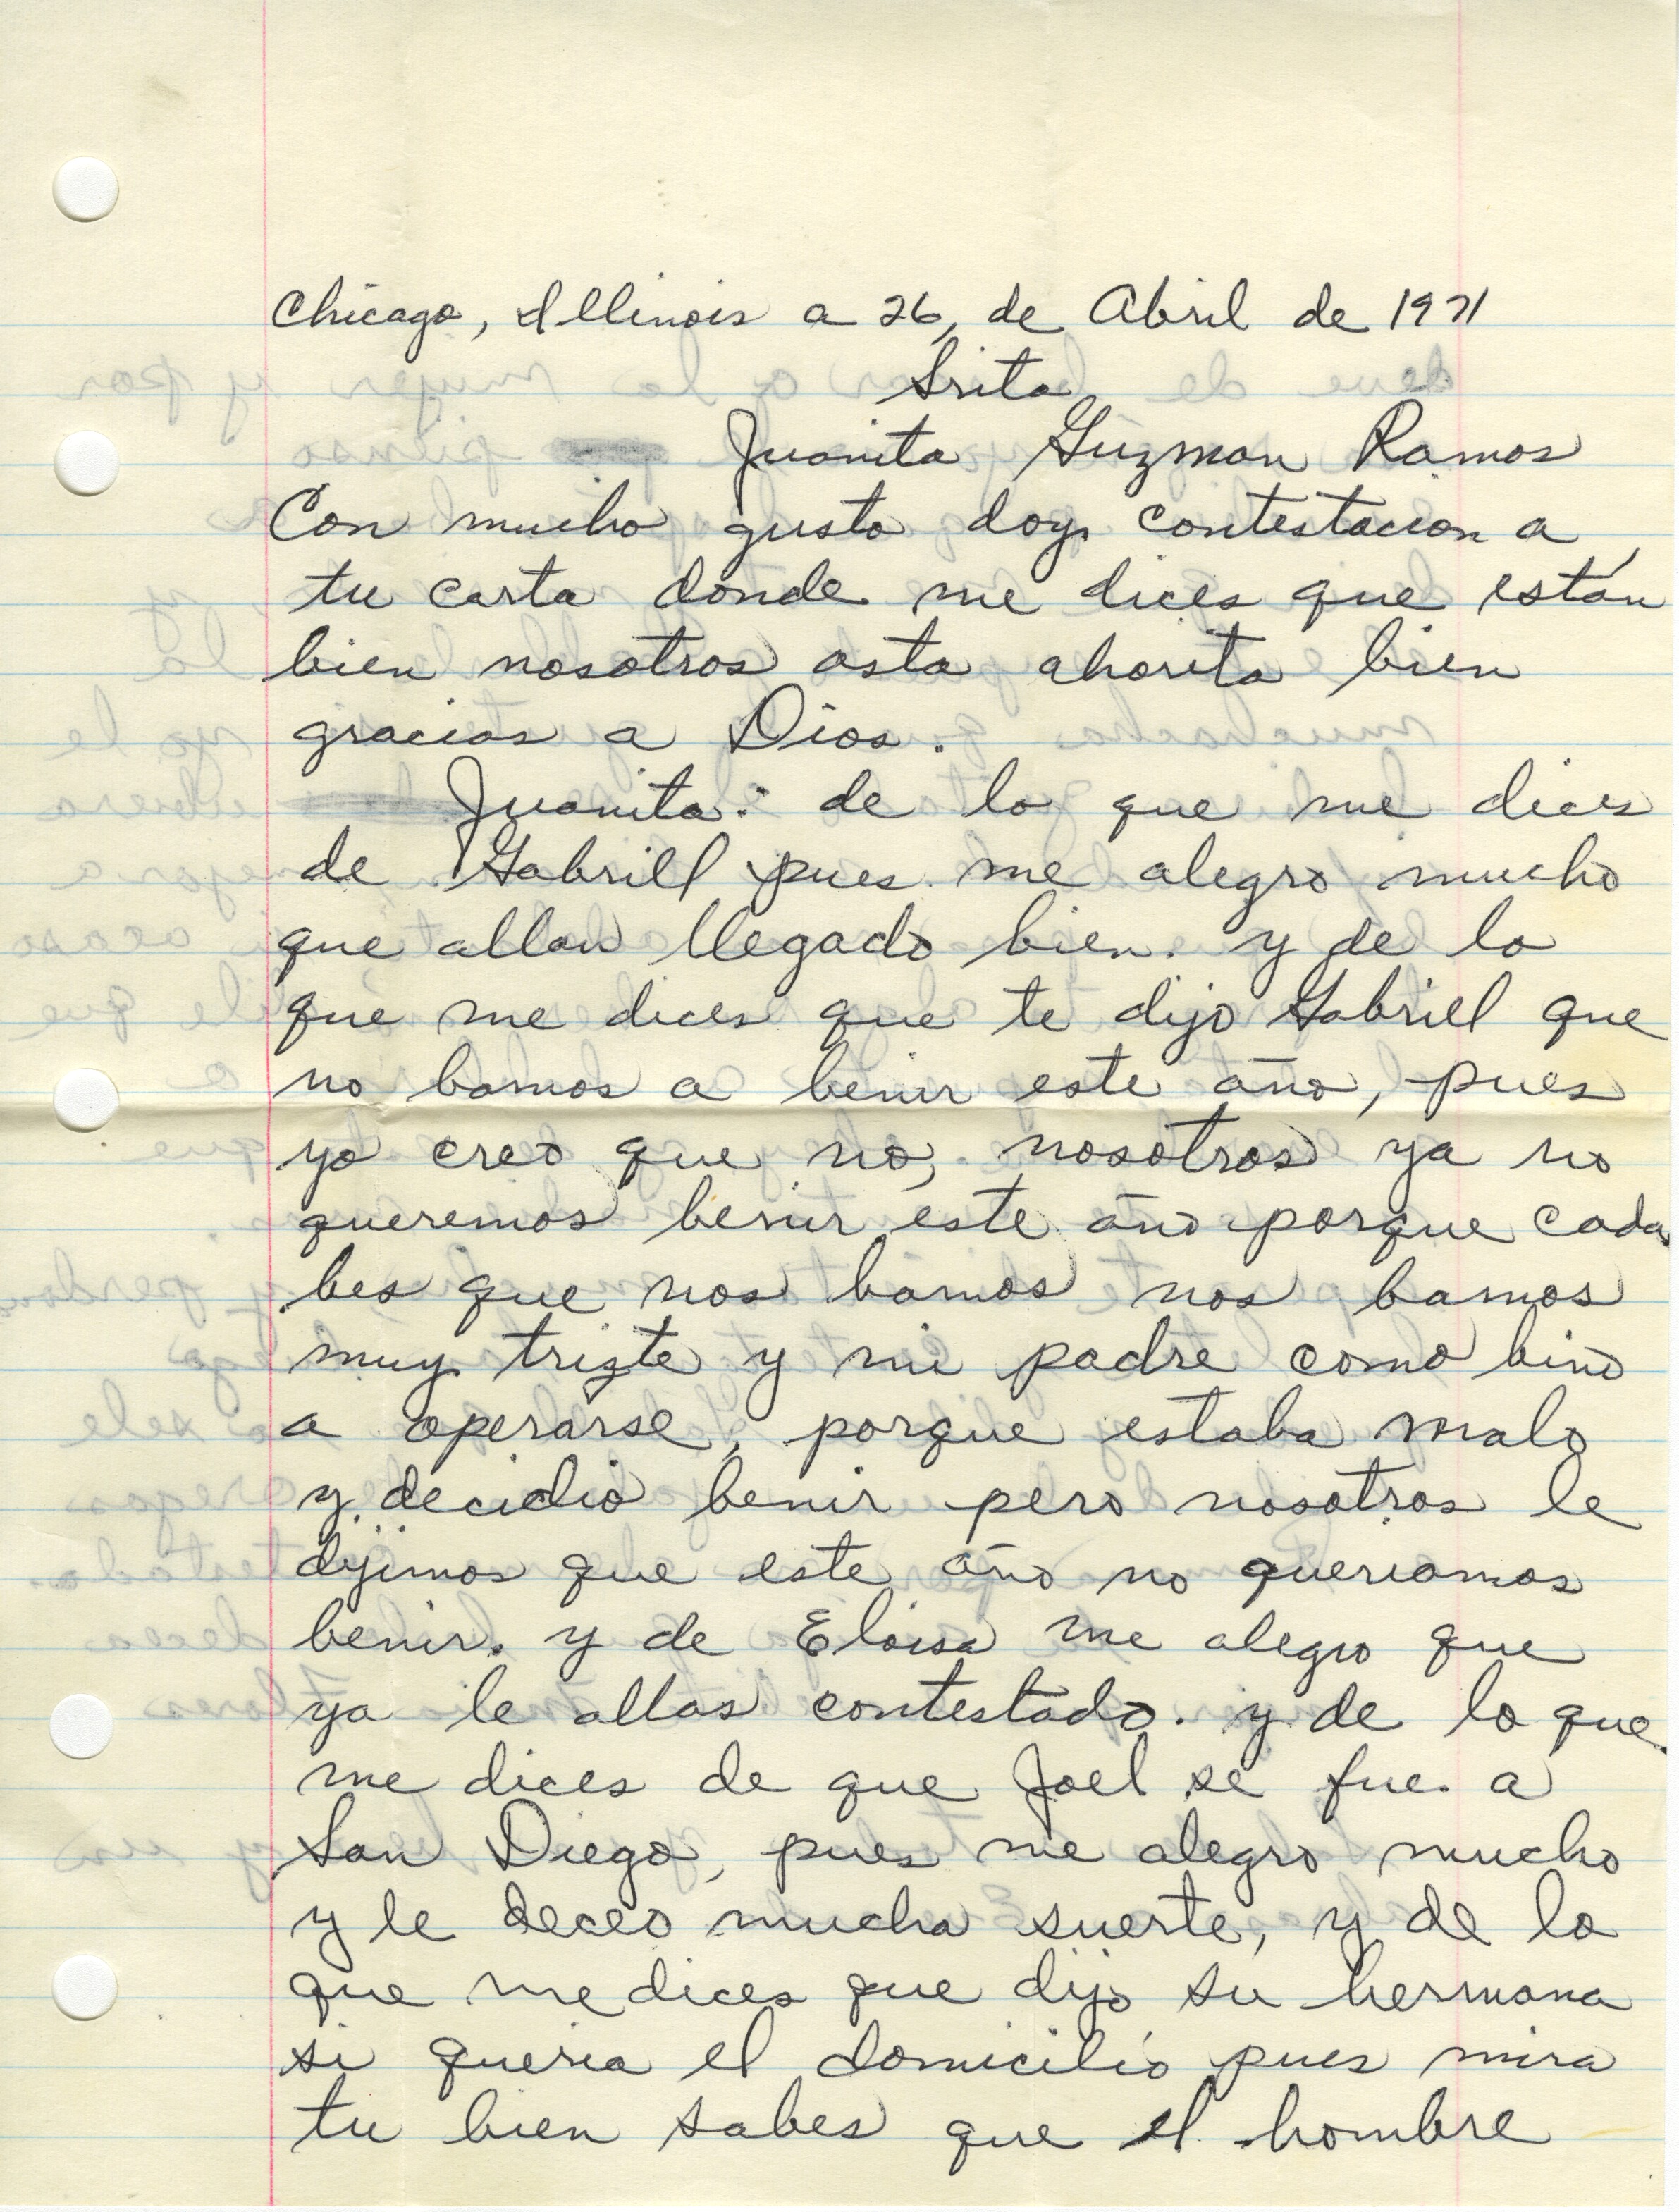 Chicago, Illinois a 26, de Abril de 1971
Srita
Juanita Guzman Ramos
Con mucho gusto doy contestacion a
tu carta donde me dices que están
bien nosotros asta ahorita bien
gracias a Dios.
Juanita: de lo que me dices
de Gabriell pues me alegro mucho
que allan llegado bien. y de lo
que me dices que te dijo Gabriell que
no bamos a benir este año, pues
yo creo que no, nosotros ya no
queremos benir este año porque cada
bes que nos bamos nos bamos
muy trizte y mi padre como bino
a operarse, porque estaba malo
y decidio benir pero nosotros le
dijimos que este año no queriamos
benir. y de Eloisa me alegro que
ya le allas contestado. y de lo que
me dices de que Joel se fue a
San Diego, pues me alegro mucho
y le deceo mucha suerte, y de lo
que me dices que dijo su hermana
si queria el domicilio pues mira
tu bien sabes que el hombre